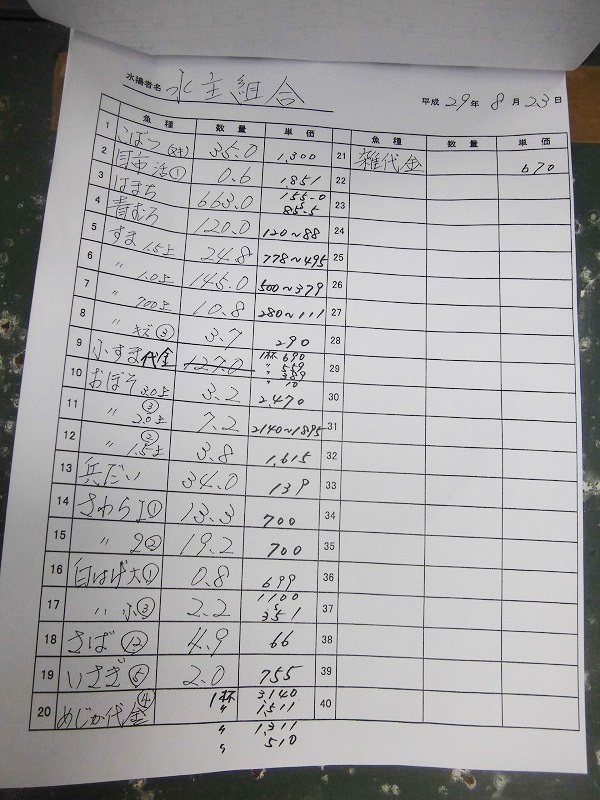 水揚者名 水主組合
平成 29年 8月 23日
魚種 数量 単価
魚種 数量 単価
1 こぼつ 35.0 1,300
2 目市活① 0.6 1851
3 はまち 663.0 155.0 〜 85.5
4 青むろ 120.0 120~88
5 すま 1.5上 24.8 778~495
6 〃 1.0上 145.0 500~379
7 〃 700上 10.8 280~111
8 〃 キズ③ 3.7 290
9 小すま代金 127.0 1杯 690
〃 559
〃 389
〃 10
10 おぼそ 3.0上 3.2 2,470
11 〃 ③ 2.0上 7.2 2140~1895
12 〃 ② 1.5上 3.8 1,615
13 兵だい 34.0 139
14 さわら1① 13.3 700
15 〃 2② 19.2 700
16 白はげ大① 0.8 699
17 〃 小③ 2.2 1100 〜 351
18 さば⑫ 4.9 66
19 いさぎ⑤ 2.0 755
20 めじか代金④ 1杯 3140
〃 1,511
〃 1,311
〃 510
21 雑代金 670
22
23
24
25
26
27
28
29
30
31
32
33
34
35
36
37
38
39
40